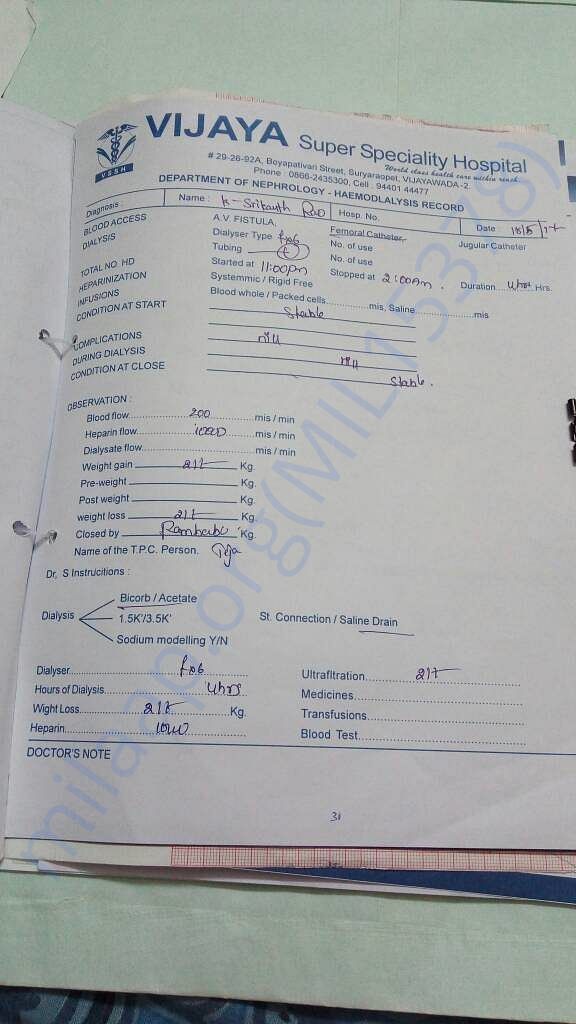 VIJAYA Super Speciality Hospital
VSSH
World class health care within reach
# 29-26-92A, Boyapativari Street, Suryaraopet, VIJAYAWADA-2.
Phone : 0866-2435300, Cell : 94401 44477
DEPARTMENT OF NEPHROLOGY - HAEMODLALYSIS RECORD
Diagnosis : Name : K- Srikanth Rao Hosp. No. Date : 18/5/17
BLOOD ACCESS A.V. FISTULA, Femoral Catheter, Jugular Catheter
DIALYSIS Dialyser Type No. of use
Tubing No. of use
TOTAL NO. HD Started at 11:00pm Stopped at 2:00am. Duration 4hrs Hrs.
HEPARINIZATION Systemmic / Rigid Free
INFUSIONS Blood whole / Packed cells mis, Saline mis
CONDITION AT START Stable
COMPLICATIONS nill
DURING DIALYSIS nill
CONDITION AT CLOSE Stable.
OBSERVATION :
Blood flow 200 mis / min
Heparin flow 1000 mis / min
Dialysate flow mis / min
Weight gain 2lt Kg.
Pre-weight Kg.
Post weight Kg.
weight loss 2lt Kg.
Closed by Rambabu Kg.
Name of the T.P.C. Person. Teja
Dr, S Instrucitions :
Bicorb / Acetate
Dialysis 1.5K'/3.5K' St. Connection / Saline Drain
Sodium modelling Y/N
Dialyser Ultrafiltration 2lt
Hours of Dialysis 4hrs Medicines
Wight Loss 2lt Kg. Transfusions
Heparin 1000 Blood Test
DOCTOR'S NOTE
31
milaap.org(MIL15378)